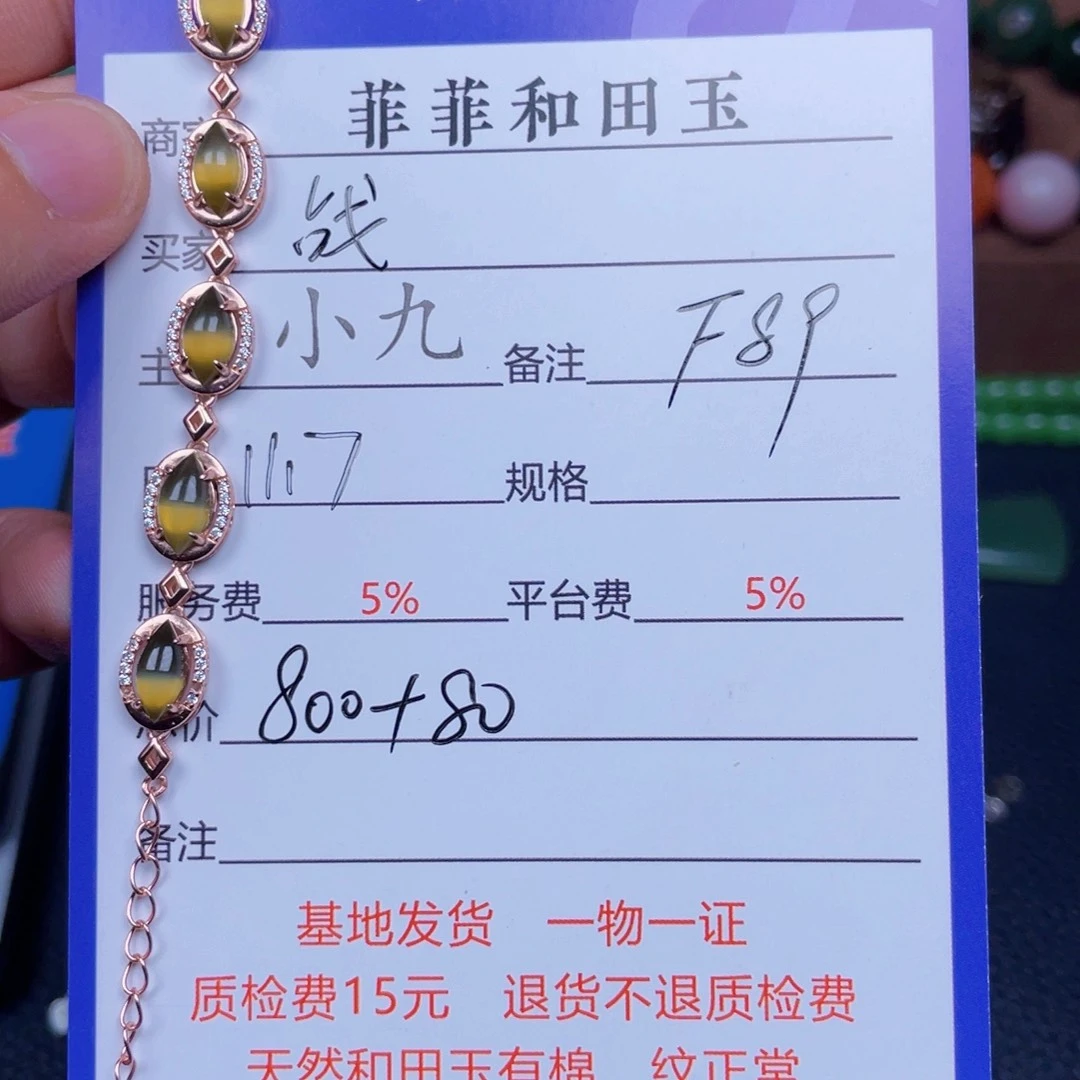 商家 菲菲和田玉
买家
主 小九 备注 F89
11.7 规格
服务费 5% 平台费 5%
价 800+80
备注
基地发货 一物一证
质检费15元 退货不退质检费
天然和田玉有棉 纹正常